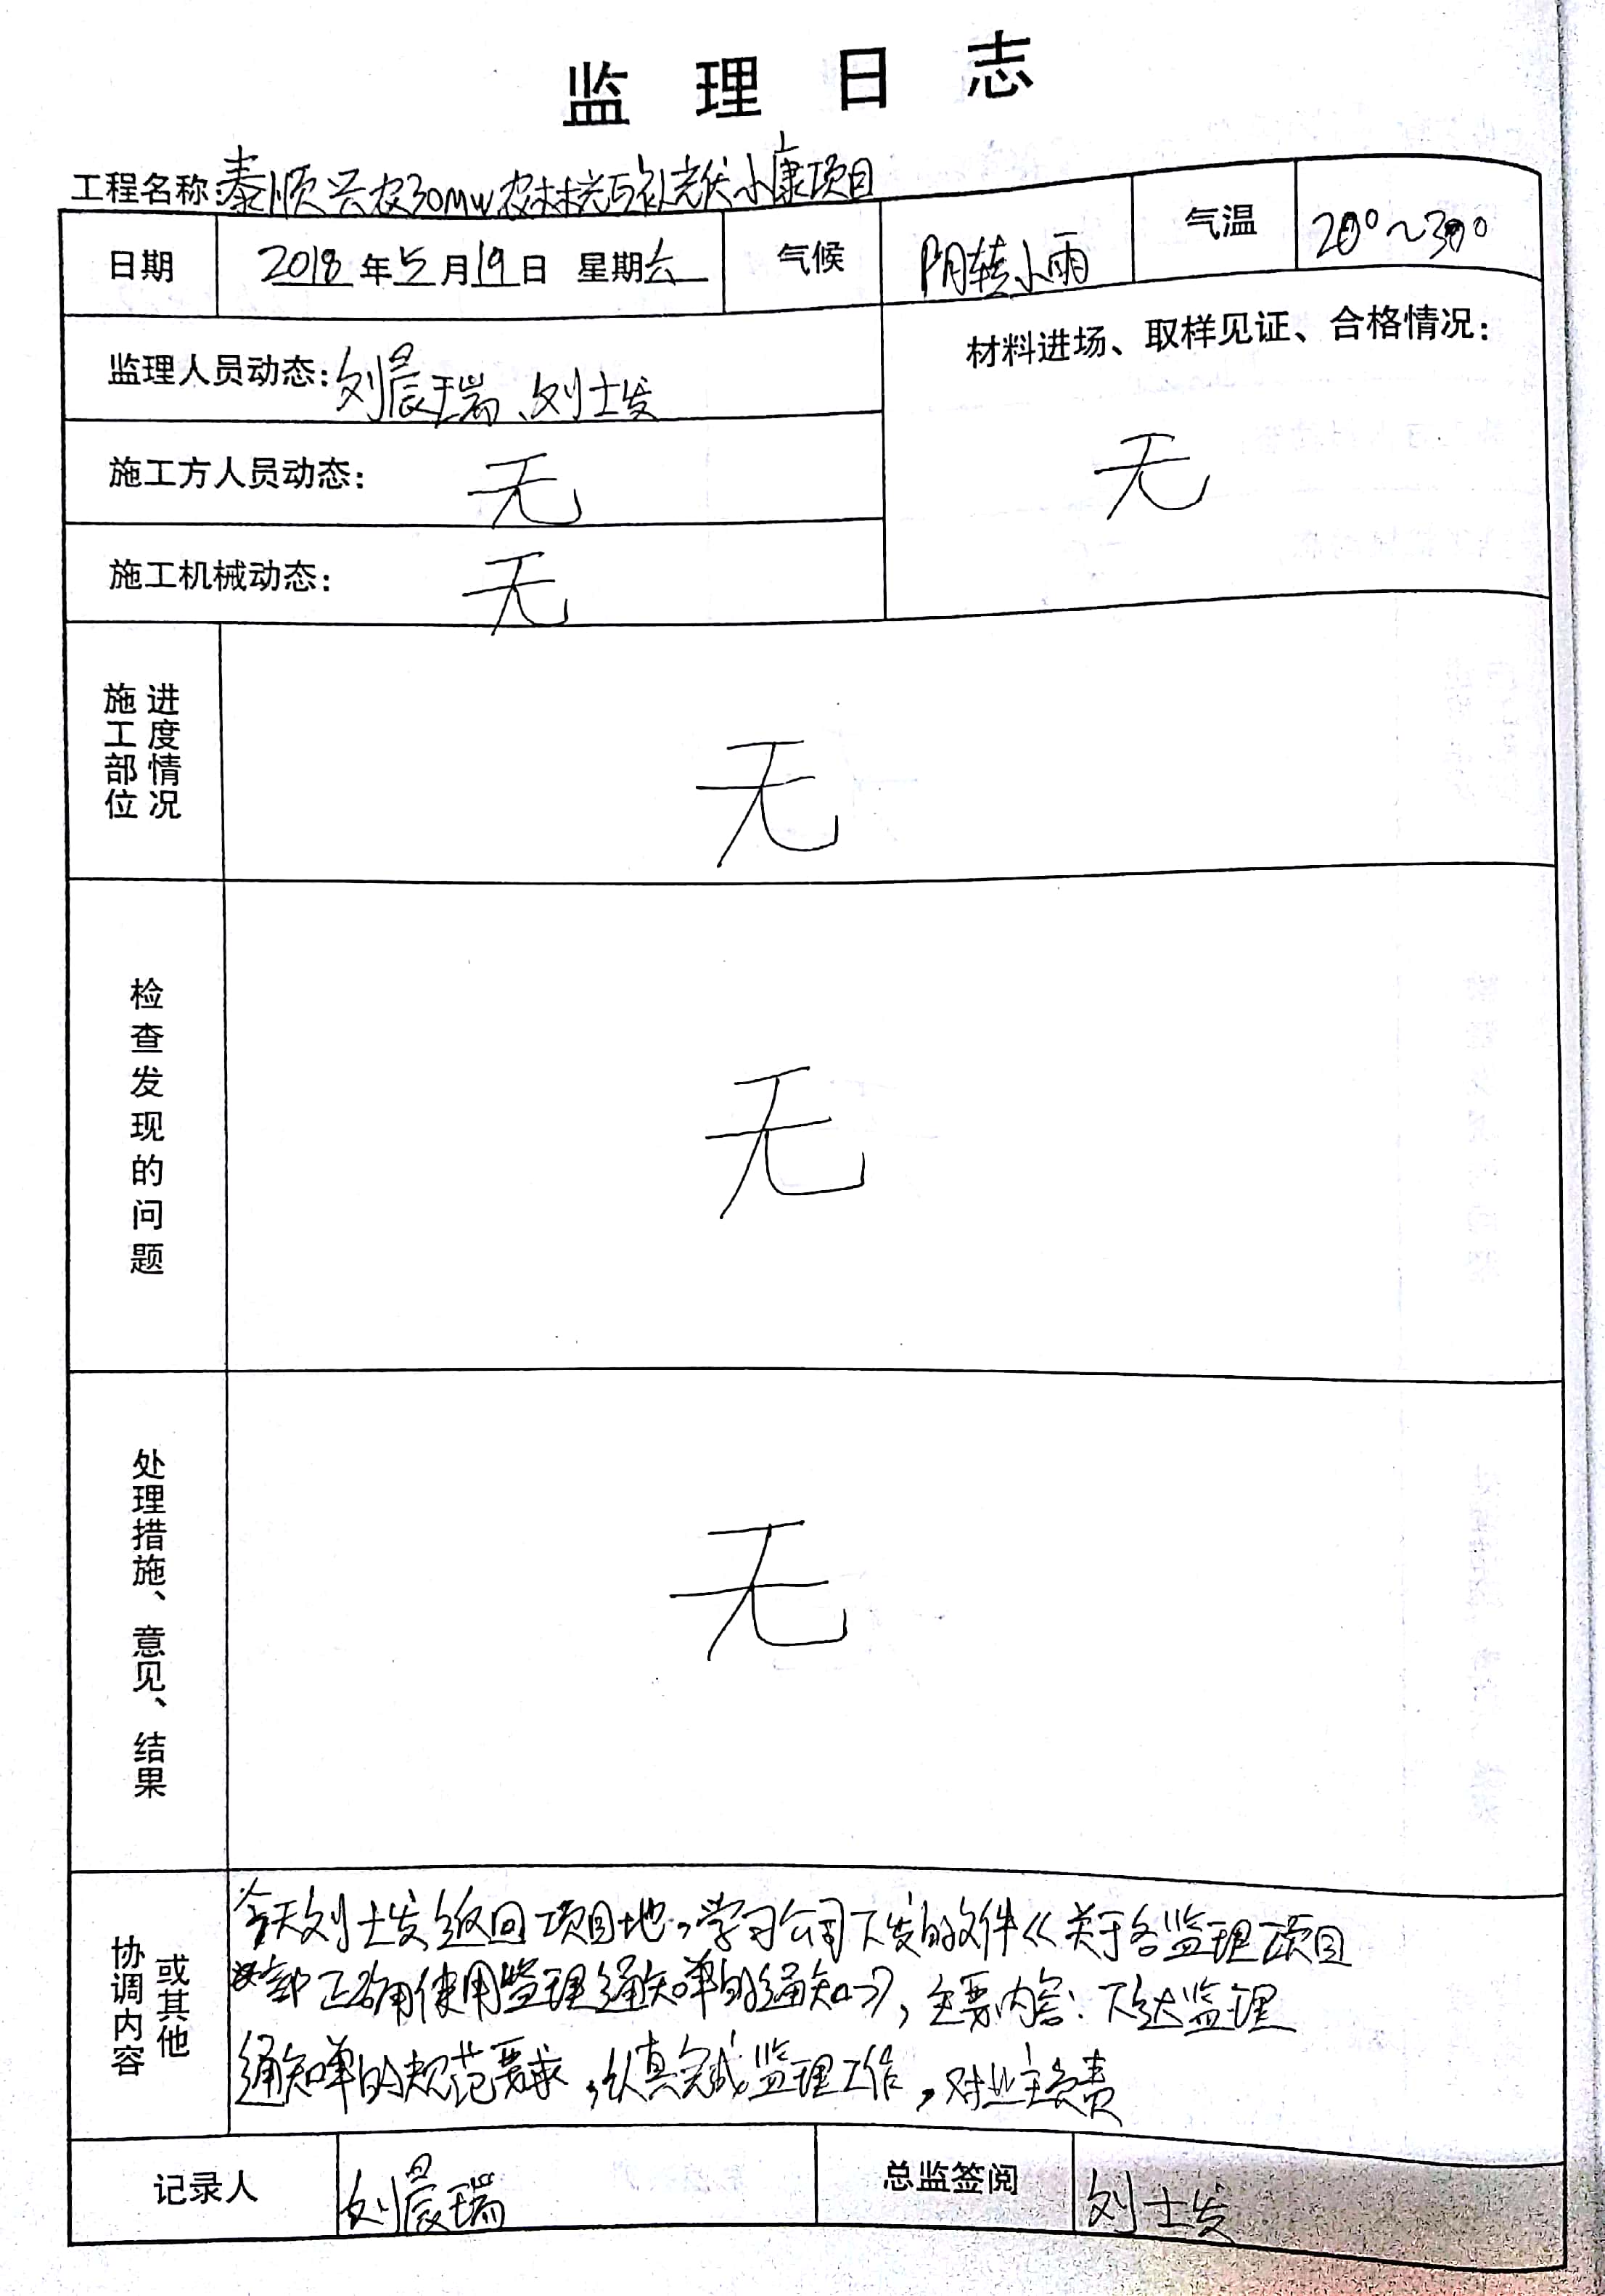 监理日志
工程名称:泰顺兴农30MW农林光互补光伏小康项目
日期 2018年5月19日 星期六 气候 阴转小雨 气温 20°~30°
监理人员动态:刘晨瑞、刘士发
材料进场、取样见证、合格情况:
无
施工方人员动态: 无
施工机械动态: 无
施工部位
进度情况
无
检查发现的问题
无
处理措施、意见、结果
无
协调内容
或其他
今天刘士发返回项目地,学习公司下发的文件《关于各监理项目
部正确使用监理通知单的通知》,主要内容:下达监理
通知单的规范要求,认真完成监理工作,对业主负责
记录人 刘晨瑞 总监签阅 刘士发